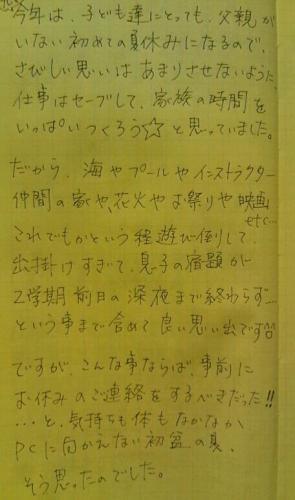 今年は、子ども達にとっても、父親が
いない初めての夏休みになるので、
さびしい思いはあまりさせないように
仕事はセーブして、家族の時間を
いっぱいつくろう☆と思っていました。
だから、海やプールやインストラクター
仲間の家や、花火やお祭りや映画
etc…
これでもかという程遊び倒して
出掛けすぎて、息子の宿題が
2学期前日の深夜まで終わらず…
という事まで含めて良い思い出です
ですが、こんな事ならば、事前に
お休みのご連絡をするべきだった!!
…と、気持ちも体もなかなか
PCに向かえない初盆の夏、
そう思ったのでした。